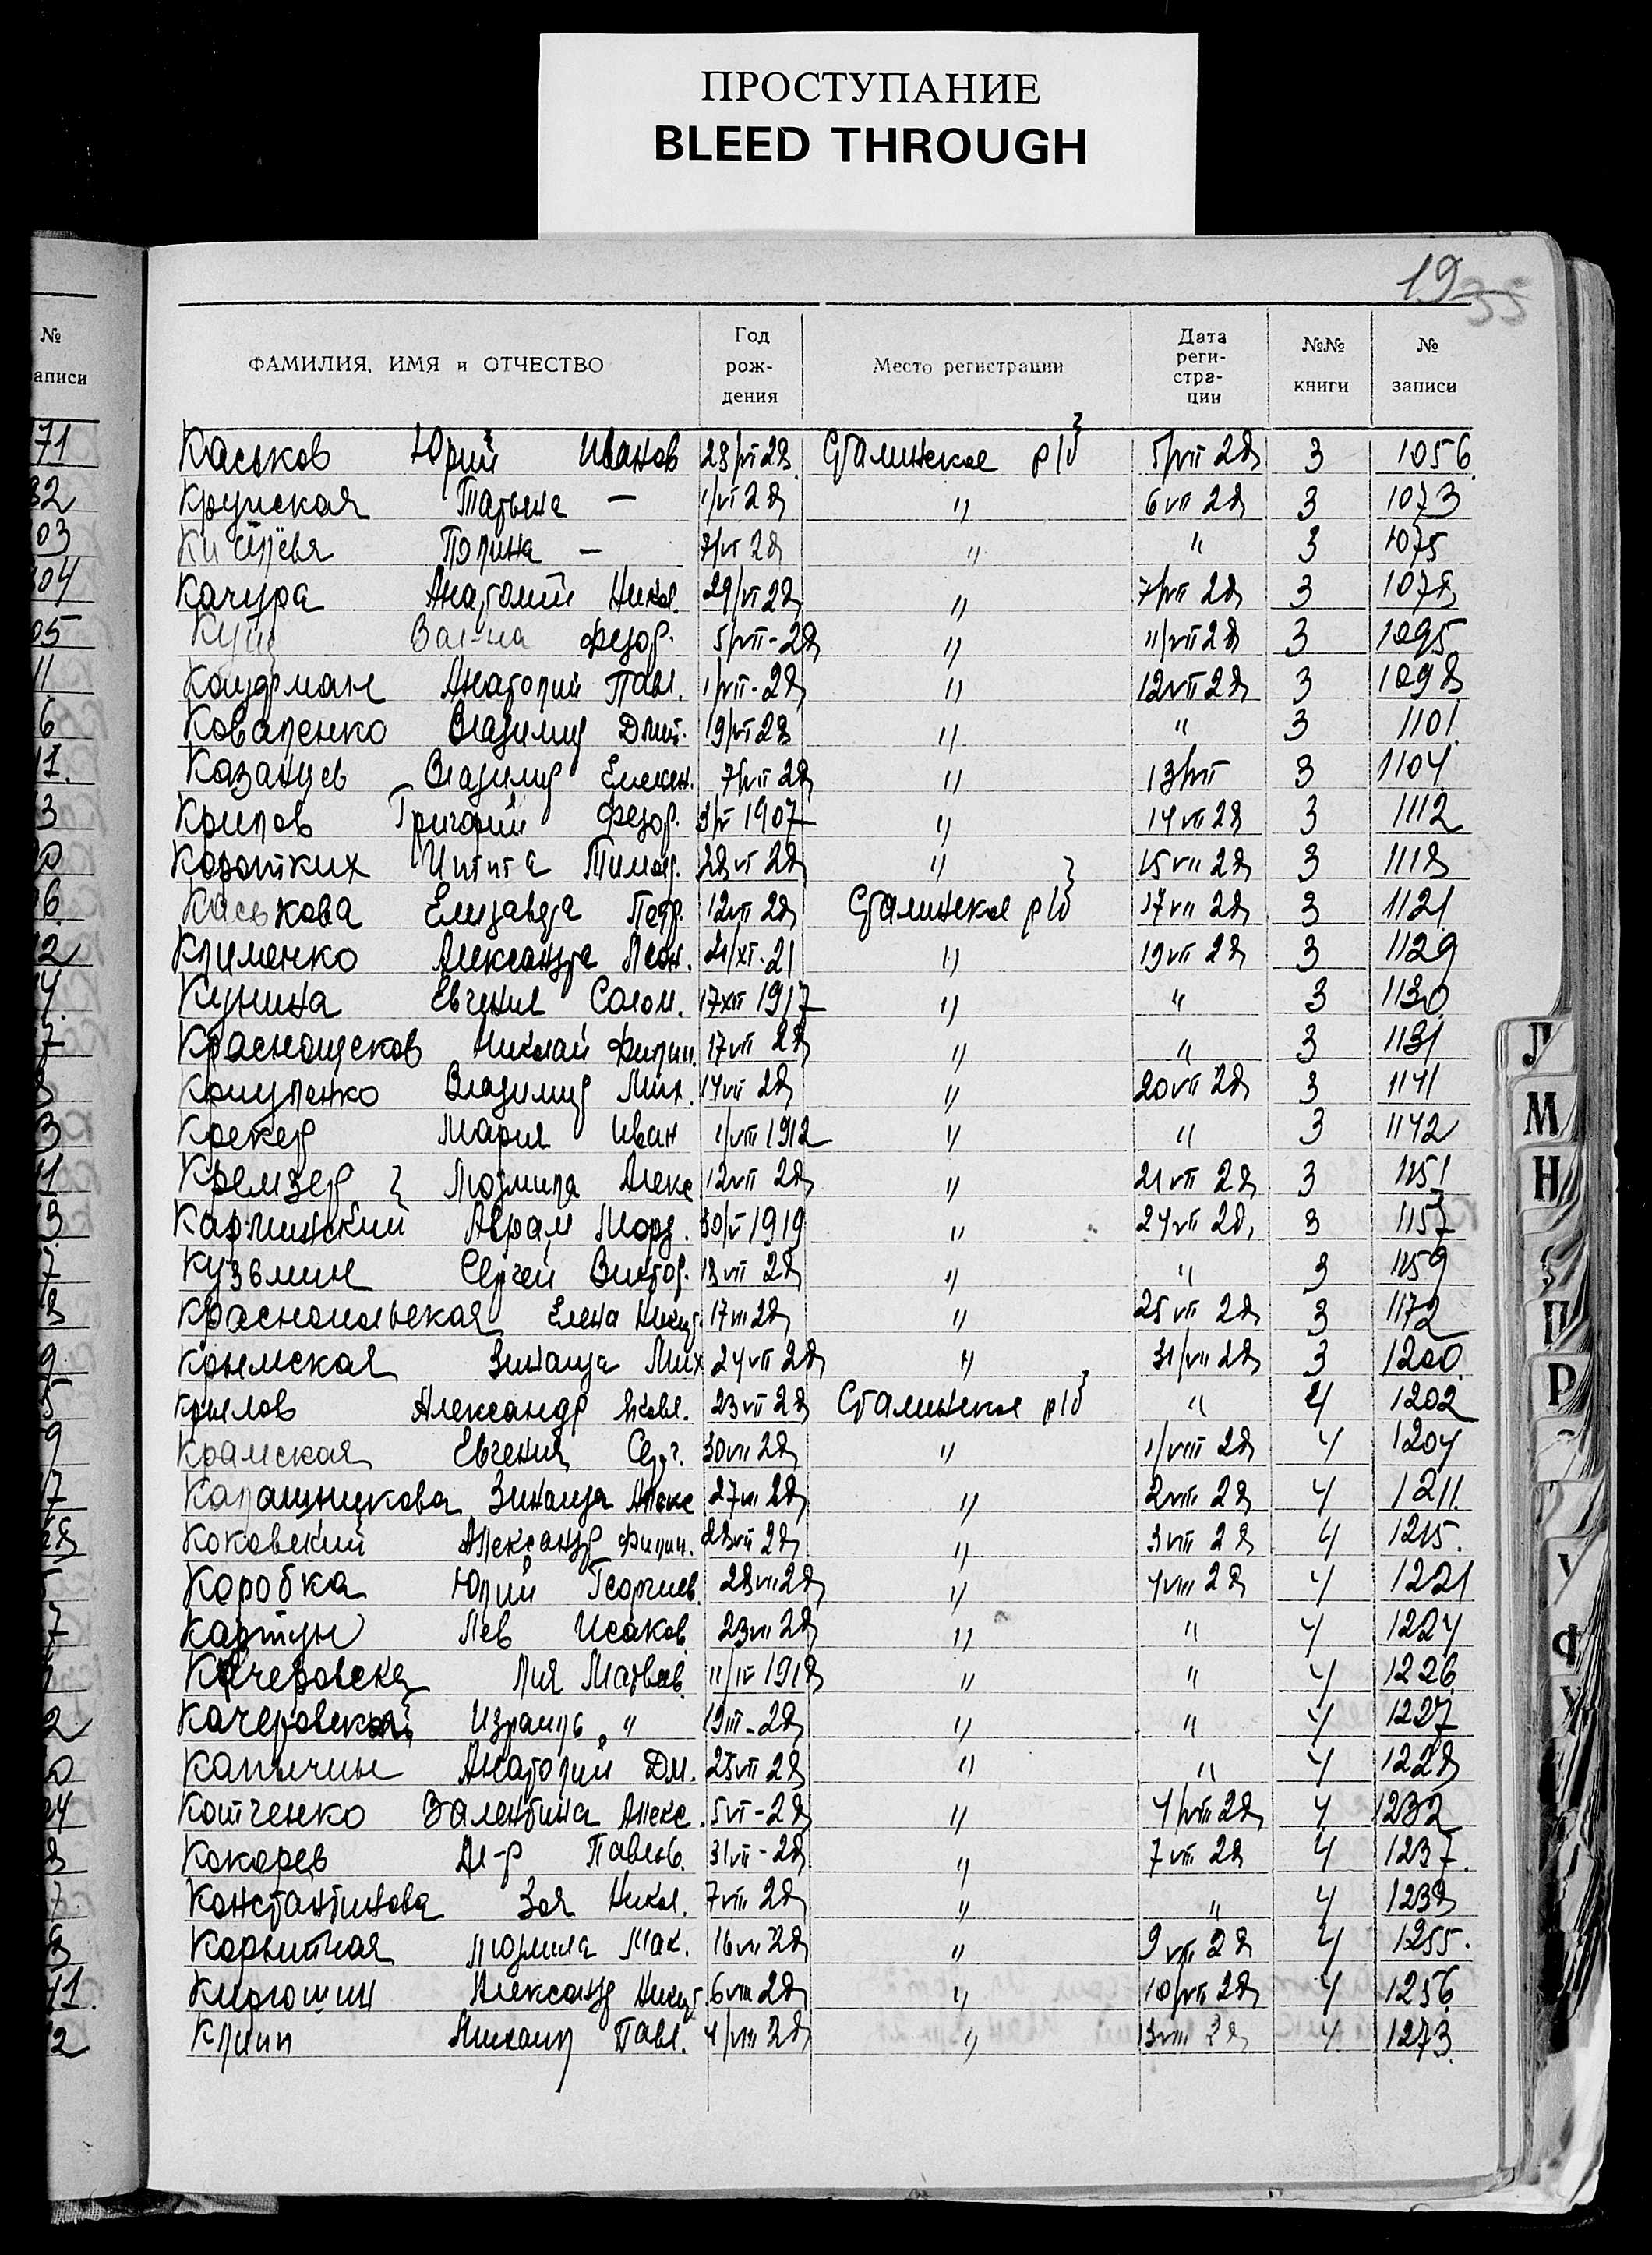 ПРОСТУПАНИЕ
BLEED THROUGH
19
35
№ записи
ФАМИЛИЯ, ИМЯ и ОТЧЕСТВО Год рождения Место регистрации Дата регистрации №№ книги № записи
Каськов Юрий Иванов 28/VI 28 Сталинское р/б 5/VII 28 3 1056
Крупская Татьяна — 1/VI 28 " 6 VII 28 3 1073
Полина — 7/VI 28 " " 3 1075
Качура Анатолий Никол. 29/VI 28 " 7/VII 28 3 1078
Кущ Вал-на Федор. 5/VII-28 " 11/VII 28 3 1095
Кауфман Анатолий Павл. 1/VII-28 " 12 VII 28 3 1098
Коваленко Владимир Дмит. 19/VI 28 " " 3 1101
Казанцев Владимир 7/VII 28 " 13/VII 3 1104
Крилов Григорий Федор. 3/V 1907 " 14 VII 28 3 1112
Коротких Тимоф. 28 VI 28 " 15 VII 28 3 1118
Каськова Елизавета Петр. 12 VII 28 Сталинское р/б 17 VII 28 3 1121
Клименко Александра Леон. 21/XI-21 " 19 VII 28 3 1129
Кунина Евгения Солом. 17 XII 1917 " " 3 1130
Краснощеков Николай Филип. 17 VII 28 " " 3 1131
Крицленко Владимир Мих. 14 VII 28 " 20 VII 28 3 1141
Крекер Мария Иван 1/VIII 1912 " " 3 1142
Кремзер Людмила Алекс 12 VII 28 " 21 VII 28 3 1151
Карлинский Абрам Морд. 30/V 1919 " 24 VII 28, 3 1157
Кузьмин Сергей Виктор. 18 VII 28 " " 3 1159
Краснопольская Елена Никиф. 17 VII 28 " 25 VII 28 3 1172
Крымская Зинаида Мих 24 VII 28 " 31/VII 28 3 1200
Крылов Александр Яковл. 23 VII 28 Сталинское р/б " 4 1202
Крамская Евгения Серг. 30 VII 28 " 1/VIII 28 4 1204
Калашникова Зинаида Алекс 27 VII 28 " 2 VIII 28 4 1211
Коковский Александр Филип. 28 VII 28 " 3 VIII 28 4 1215
Коробка Юрий Георгиев. 28 VII 28 " 4 VIII 28 4 1221
Картун Лев Исаков 23 VII 28 " " 4 1224
Качеровска Лия Матвеев. 11/IV 1918 " " 4 1226
Качеровский Израиль " 19 III-28 " " 4 1227
Капычин Анатолий Дм. 25 VII 28 " " 4 1228
Котченко Валентина Алекс. 5 VI-28 " 4/VIII 28 4 1232
Кокарев Ал-р Павлов. 31 VII-28 " 7 VIII 28 4 1237
Константинова Зоя Никол. 7 VII 28 " " 4 1238
Корытная Людмила Мак. 16 VII 28 " 9 VIII 28 4 1255
Кирюшин Александр Никиф. 6 VIII 28 " 10/VIII 28 4 1256
Клиин Михаил Павл. 4/VIII 28 " 13 VIII 28 4 1273
Л
М
Н
П
Р
У
Ф
Х